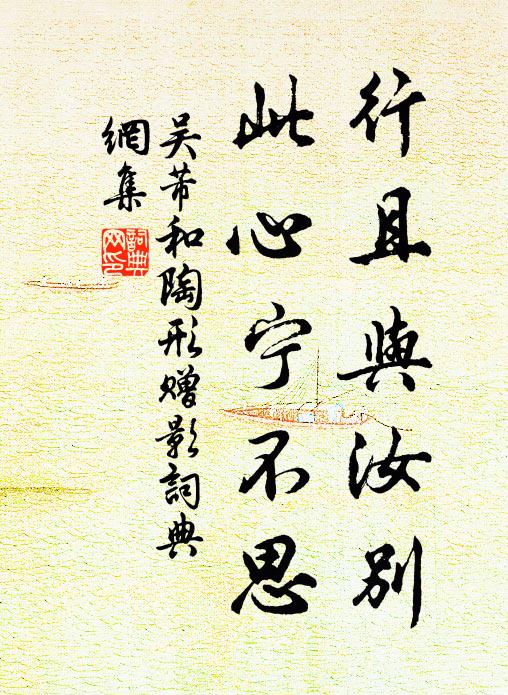 行且與汝別
此心宁不思
吴芾和陶形赠影詞典
網集
詞典
网印